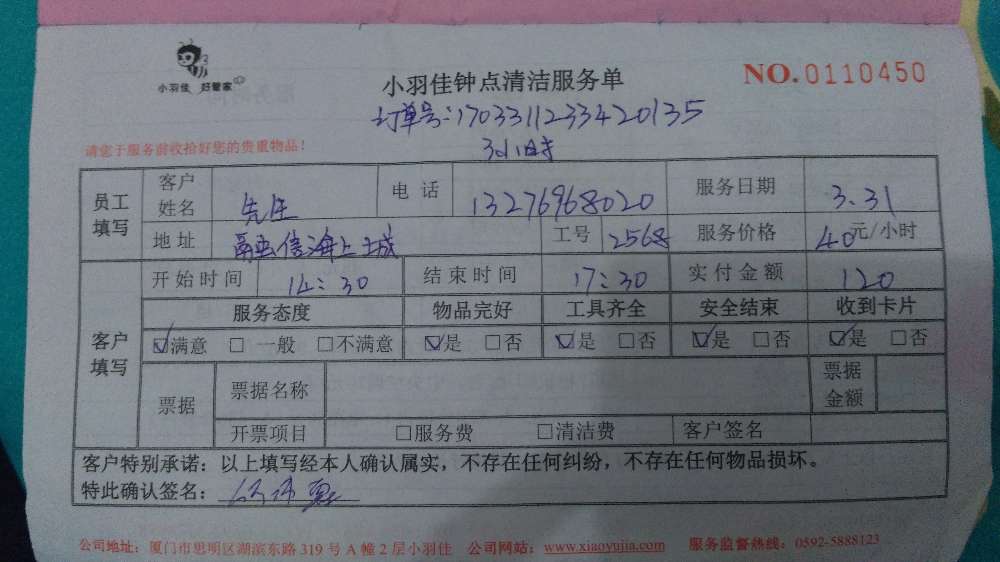 小羽佳 好管家
小羽佳钟点清洁服务单
NO.0110450
订单号:1703311233420135
请您于服务前收拾好您的贵重物品!
3小时
员工填写 客户姓名 先生 电话 13276968020 服务日期 3.31
地址 海上城 工号 2568 服务价格 40元/小时
客户填写 开始时间 14:30 结束时间 17:30 实付金额 120
服务态度 物品完好 工具齐全 安全结束 收到卡片
☑满意 □一般 □不满意 ☑是 □否 ☑是 □否 ☑是 □否 ☑是 □否
票据 票据名称 票据金额
开票项目 □服务费 □清洁费 客户签名
客户特别承诺：以上填写经本人确认属实，不存在任何纠纷，不存在任何物品损坏。
特此确认签名：
公司地址：厦门市思明区湖滨东路319号A幢2层小羽佳 公司网站：www.xiaoyujia.com 服务监督热线：0592-5888123